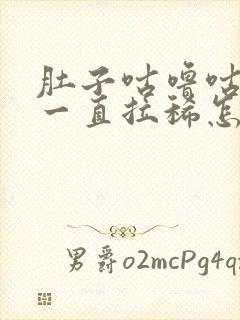 肚子咕噜咕
一直拉稀怎
男爵o2mcPg4q